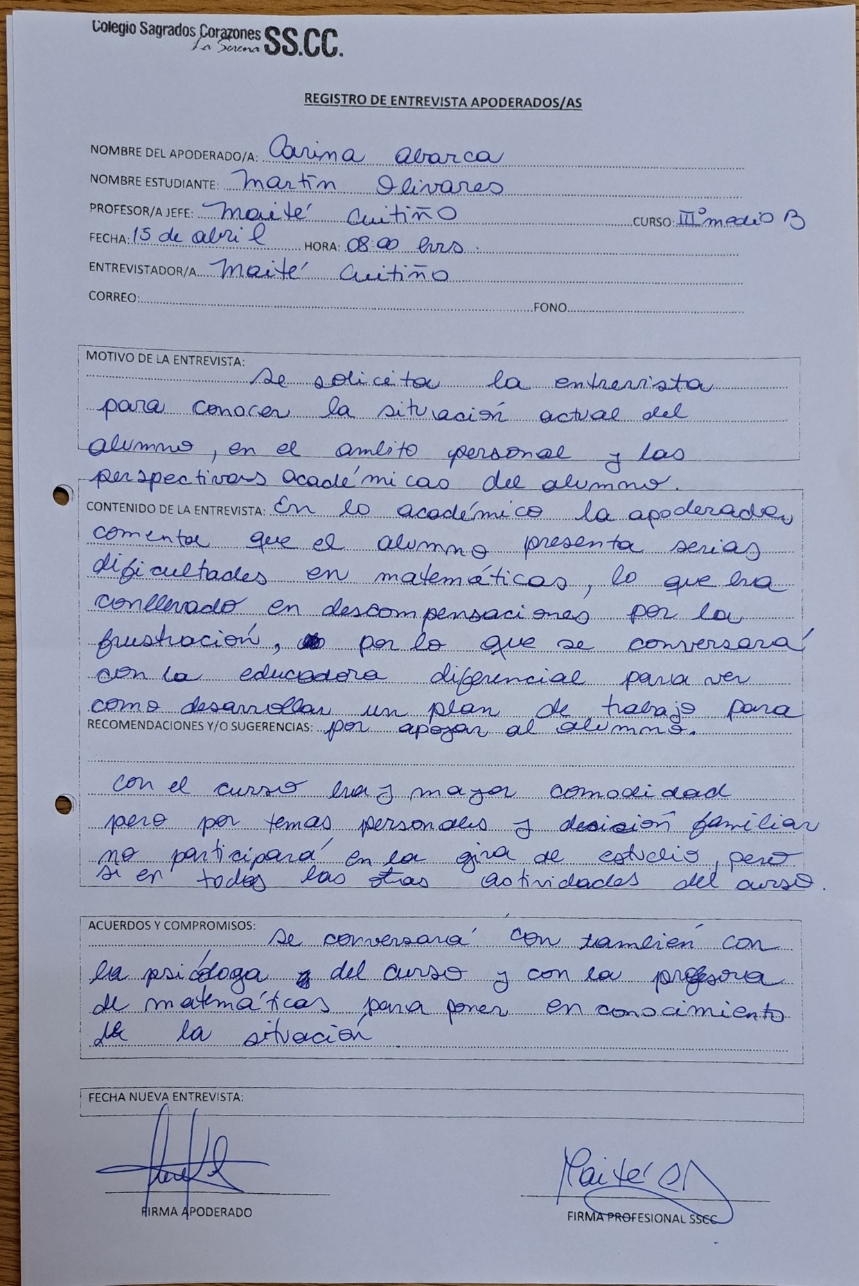 Colegio Sagrados Corazones SS.CC.
La Serena
REGISTRO DE ENTREVISTA APODERADOS/AS
NOMBRE DEL APODERADO/A: Carina Abarca
NOMBRE ESTUDIANTE: Martín Olivares
PROFESOR/A JEFE: Maité Cuitiño CURSO: III° medio B
FECHA: 15 de abril HORA: 08:00 hrs.
ENTREVISTADOR/A Maité Cuitiño
CORREO: FONO
MOTIVO DE LA ENTREVISTA:
Se solicita la entrevista
para conocer la situación actual del
alumno, en el ambito personal y las
perspectivas académicas del alumno.
CONTENIDO DE LA ENTREVISTA: En lo académico la apoderada,
comenta que el alumno presenta serias
dificultades en matemáticas, lo que ha
conllevado en descompensaciones por la
frustración, por lo que se conversará
con la educadora diferencial para ver
como desarrollar un plan de trabajo para
RECOMENDACIONES Y/O SUGERENCIAS: por apoyar al alumno.
con el curso hay mayor comodidad
pero por temas personales y decisión familiar
no participará en la gira de estudio, pero
si en todos las otras actividades del curso.
ACUERDOS Y COMPROMISOS:
Se conversará con también con
la psicóloga del curso y con la profesora
de matemáticas para poner en conocimiento
de la situación
FECHA NUEVA ENTREVISTA:
Maité
FIRMA APODERADO FIRMA PROFESIONAL SSCC